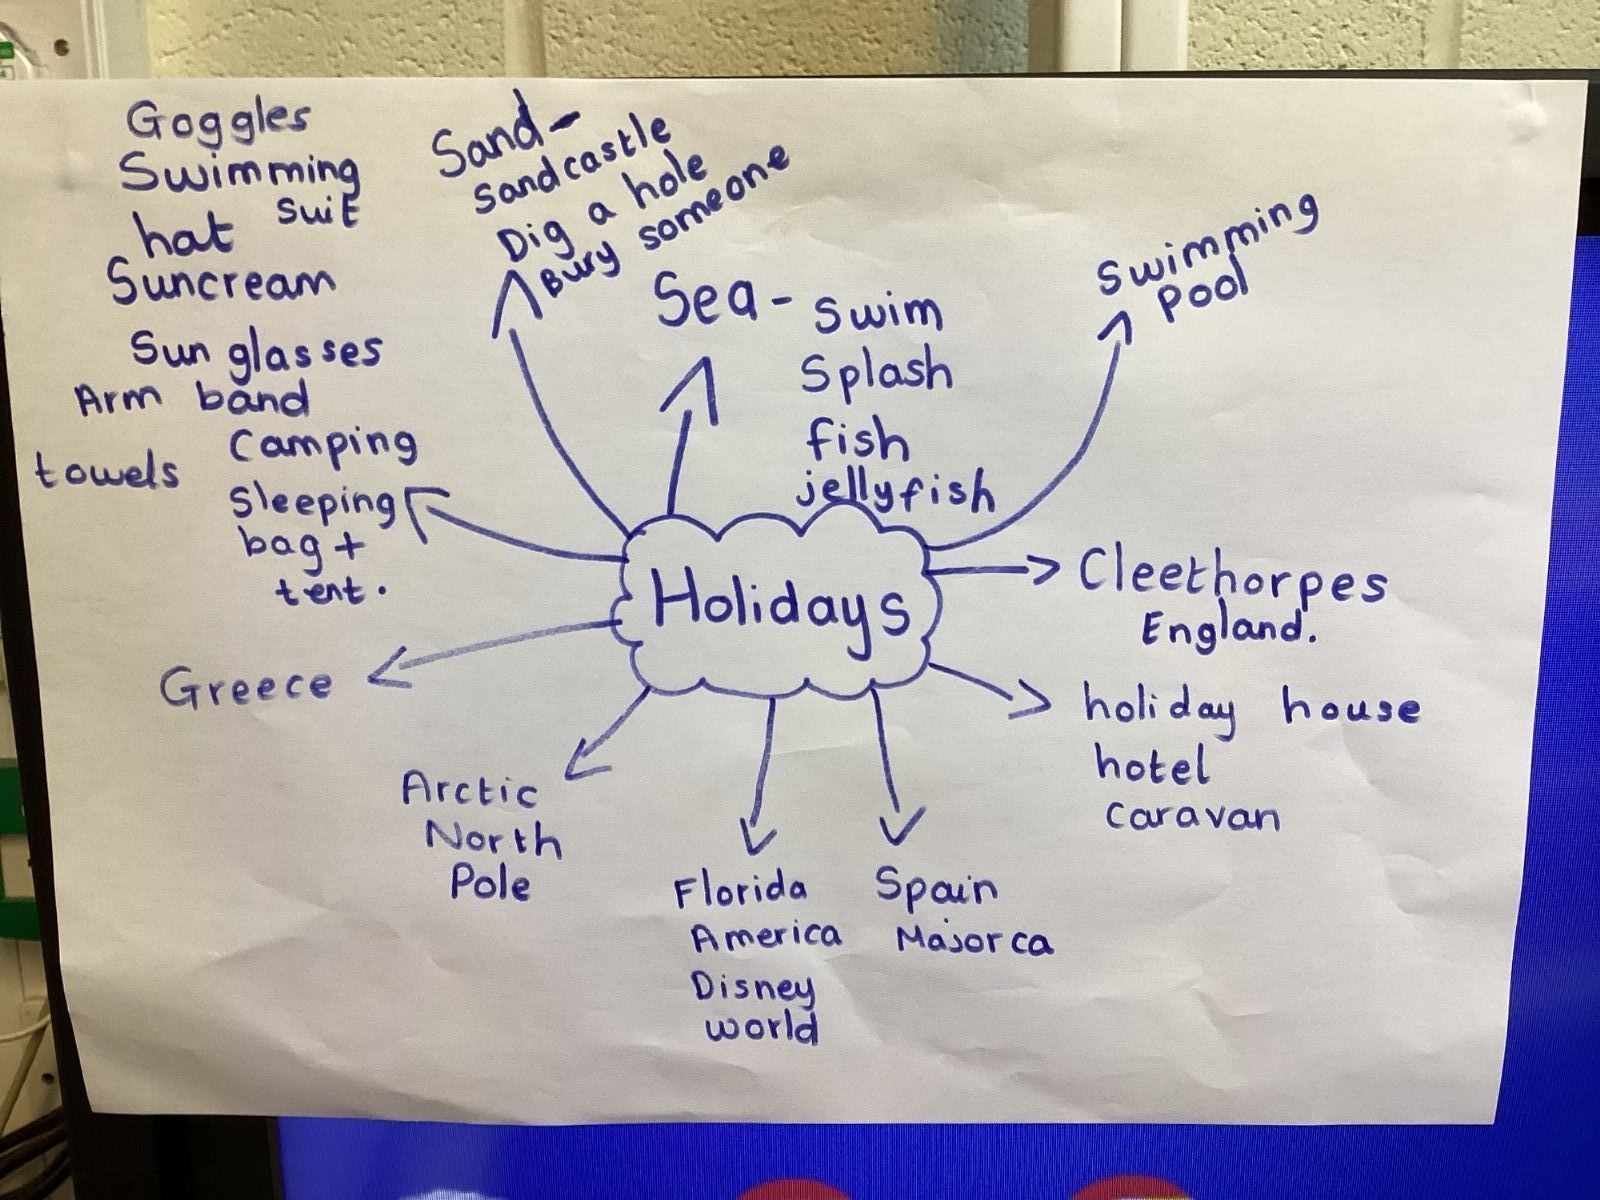 Goggles
Swimming
suit
hat
Suncream
Sun glasses
Arm band
towels
Camping
Sleeping
bag +
tent.
Sand-
sandcastle
Dig a hole
Bury someone
Sea- swim
Splash
fish
jellyfish
Swimming
Pool
Holidays
Cleethorpes
England.
holiday house
hotel
caravan
Greece
Arctic
North
Pole
Florida
America
Disney
world
Spain
Majorca